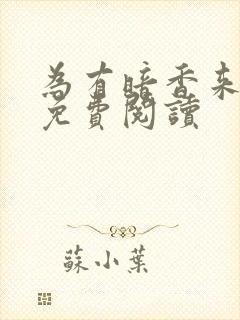 為有暗香来
免費閱讀
蘇小葉